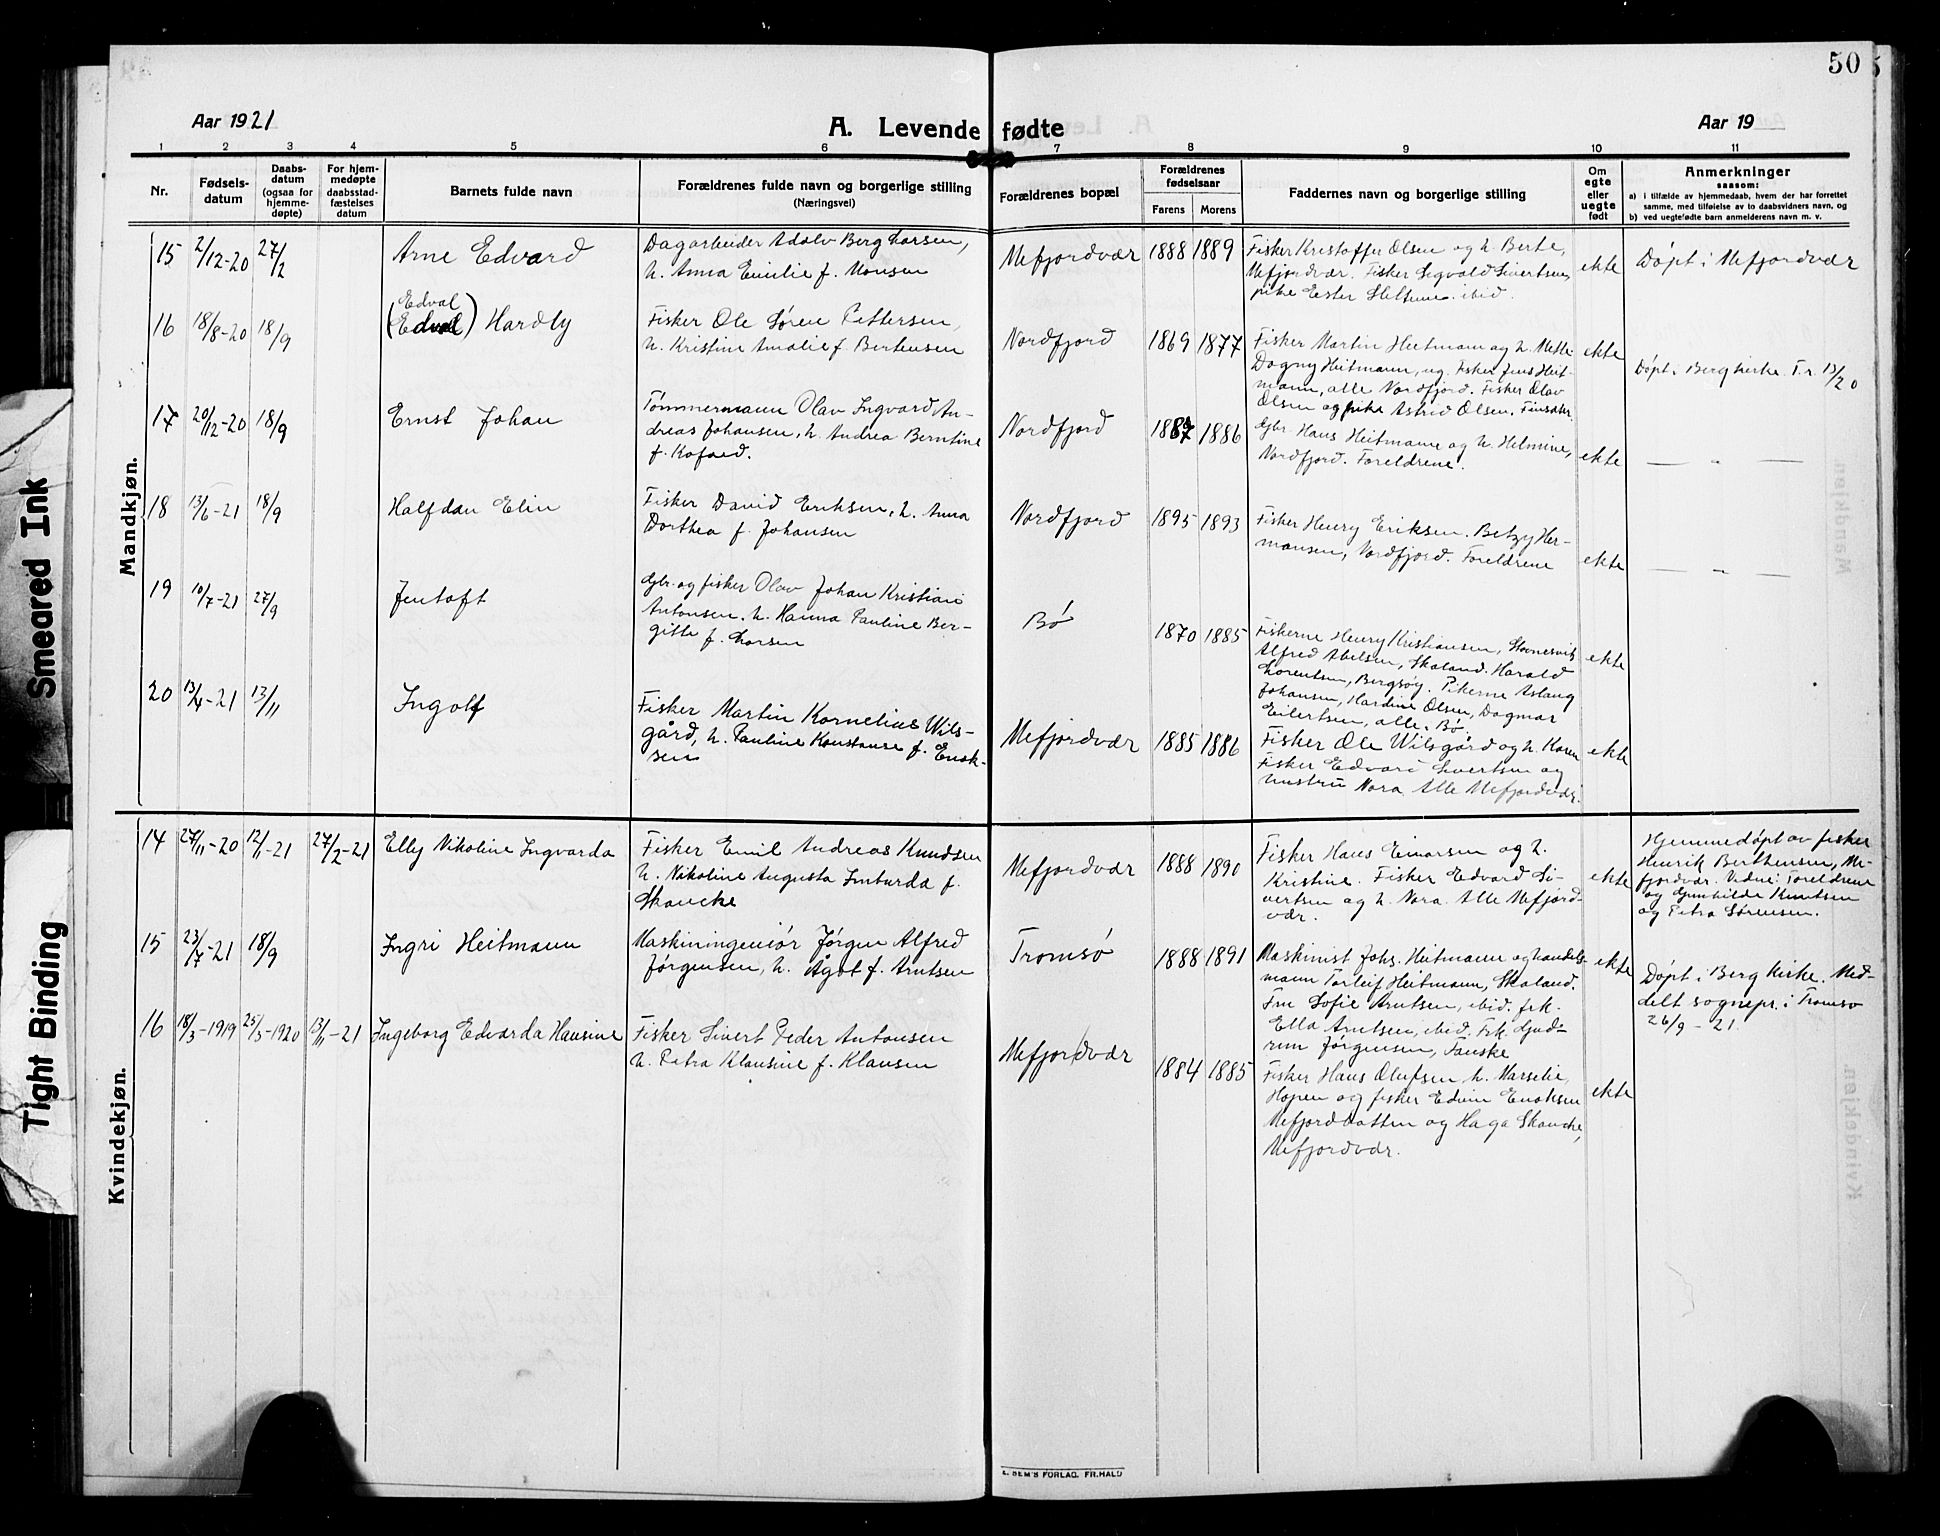 50
Aar 1921
A. Levende fødte
Aar 19
1 2 3 4 5 6 7 8 9 10 11
Nr.
Fødsels-
datum
Daabs-
datum
(ogsaa for
hjemme-
døpte)
For hjem-
medøpte
daabsstad-
fæstelses
datum
Barnets fulde navn
Forældrenes fulde navn og borgerlige stilling
(Næringsvei)
Forældrenes bopæl
Forældrenes
fødselsaar
Farens Morens
Faddernes navn og borgerlige stilling
Om
egte
eller
uegte
født
Anmerkninger
saasom:
a) i tilfælde av hjemmedaab, hvem der har forrettet
samme, med tilføielse av to daabsvidners navn, og
b) ved uegtefødte barn anmelderens navn m. v.
Mandkjøn.
15 2/12-20 27/2
Arne Edvard
Dagarbeider Adolv Berg Larsen,
h. Anna Emilie f. Monsen
Mefjordvær 1888 1889
Fisker Kristoffer Olsen og h. Berte,
Mefjordvær. Fisker Sigvald Sivertsen,
pike Ester ibid.
ekte
Døpt i Mefjordvær
16 18/8-20 18/9
Edval
(Edval) Hardly
Fisker Ole Søren Pettersen,
h. Kristine Amalie f. Bertensen
Nordfjord 1869 1877
Fisker Martin Heitmann og h. Mette
Dagny Heitmann, ug. Fisker Jens Heit-
mann, alle Nordfjord. Fisker Olav
Olsen og pike Astrid Olsen, Finsæter
ekte
Døpt i Berg kirke. T.r. 13/20
17 20/12-20 18/9
Ernst Johan
Tømmermann Olav Ingvard An-
dreas Johansen, h. Andrea Berntine
f. Kofoed.
Nordfjord 1887 1886
Gbr. Hans Heitmann og h. Helmine,
Nordfjord. Foreldrene.
ekte
— „ —
18 13/6-21 18/9
Halfdan Elin
Fisker David Eriksen, h. Anna
Dorthea f. Johansen
Nordfjord 1895 1893
Fisker Henry Eriksen. Betzy Her-
mansen, Nordfjord. Foreldrene
ekte
— „ —
19 10/7-21 27/9
Jentoft
Gbr. og fisker Olav Johan Kristian
Antonsen, h. Hanna Pauline Ber-
gitte f. Larsen
Bø
1870 1885
Fiskerne Henry Kristiansen, Stønesvik
Alfred Abelsen, Skaland. Harald
Lorentsen, Bergsøy. Pikerne Aslaug
Johansen, Hardine Olsen, Dagmar
Eilertsen, alle Bø.
ekte
20 13/4-21 13/11
Ingolf
Fisker Martin Kornelius Wils-
gård, h. Pauline Konstanse f. Enok-
sen
Mefjordvær 1885 1886
Fisker Ole Wilsgård og h. Karen
Fisker Edvard Sivertsen og
hustru Nora. Alle Mefjordvær.
ekte
Kvindekjøn.
14 27/11-20 12/1-21 27/2-21
Elly Nikoline Ingvarda
Fisker Emil Andreas Knudsen
h. Nikoline Augusta Imburda f.
Skancke
Mefjordvær 1888 1890
Fisker Hans Einarsen og h.
Kristine. Fisker Edvard Si-
vertsen og h. Nora. Alle Mefjord-
vær.
ekte
Hjemmedøpt av fisker
Henrik Berthensen, Me-
fjordvær. Vidne: Foreldrene
og Gunhilde Knutsen
og Petra Sørensen.
15 23/7-21 18/9
Ingri Heitmann
Maskiningeniør Jørgen Alfred
Jørgensen, h. Ågot f. Arntsen
Tromsø
1888 1891
Maskinist Johs. Heitmann og handels-
mann Torleif Heitmann, Skaland.
Fru Sofie Arntsen, ibid. frk.
Ella Arntsen, ibid. Frk. Gud-
run Jørgensen, Fauske
ekte
Døpt i Berg kirke. Med-
delt sognepr. i Tromsø
26/9-21.
16 18/3-1919 25/3-1920 13/11-21
Ingeborg Edvarda Hansine
Fisker Sivert Peder Antonsen
h. Petra Klausine f. Klausen
Mefjordvær
1884 1885
Fisker Hans Olufsen h. Marselie,
Hopen og fisker Edvin Enoksen
Mefjordbotten og Haga Skancke,
Mefjordvær.
ekte
SEM'S FORLAG, FR.HALD
Smeared Ink
Tight Binding